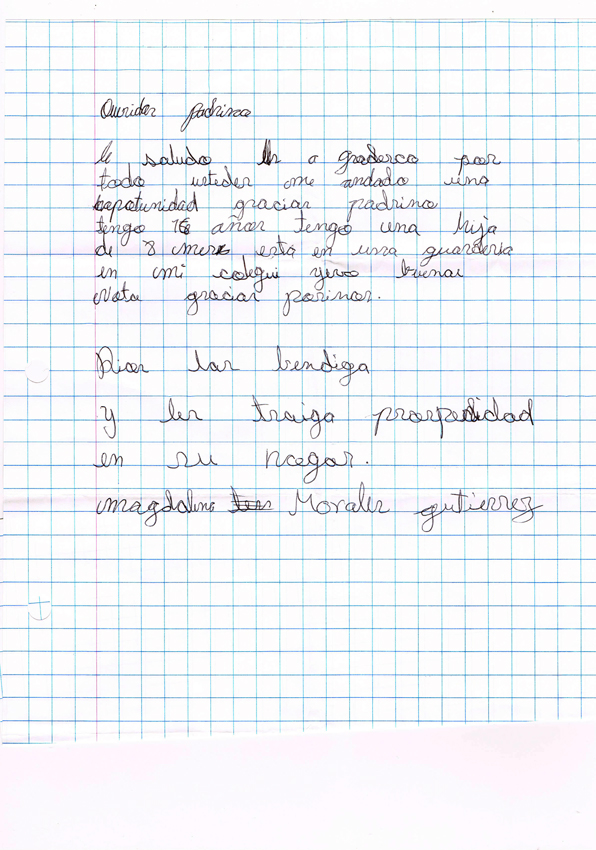 Queridos padrinos
le saludo les a gradesco por
todo ustedes me andado una
oepotunidad gracias padrino
tengo 16 años tengo una hija
de 8 mese está en una guarderia
en mi colegui yevo buenas
Nota gracias parinos.
Dios los bendiga
y les traiga prospedidad
en su hogar.
magdalena Morales gutierrez